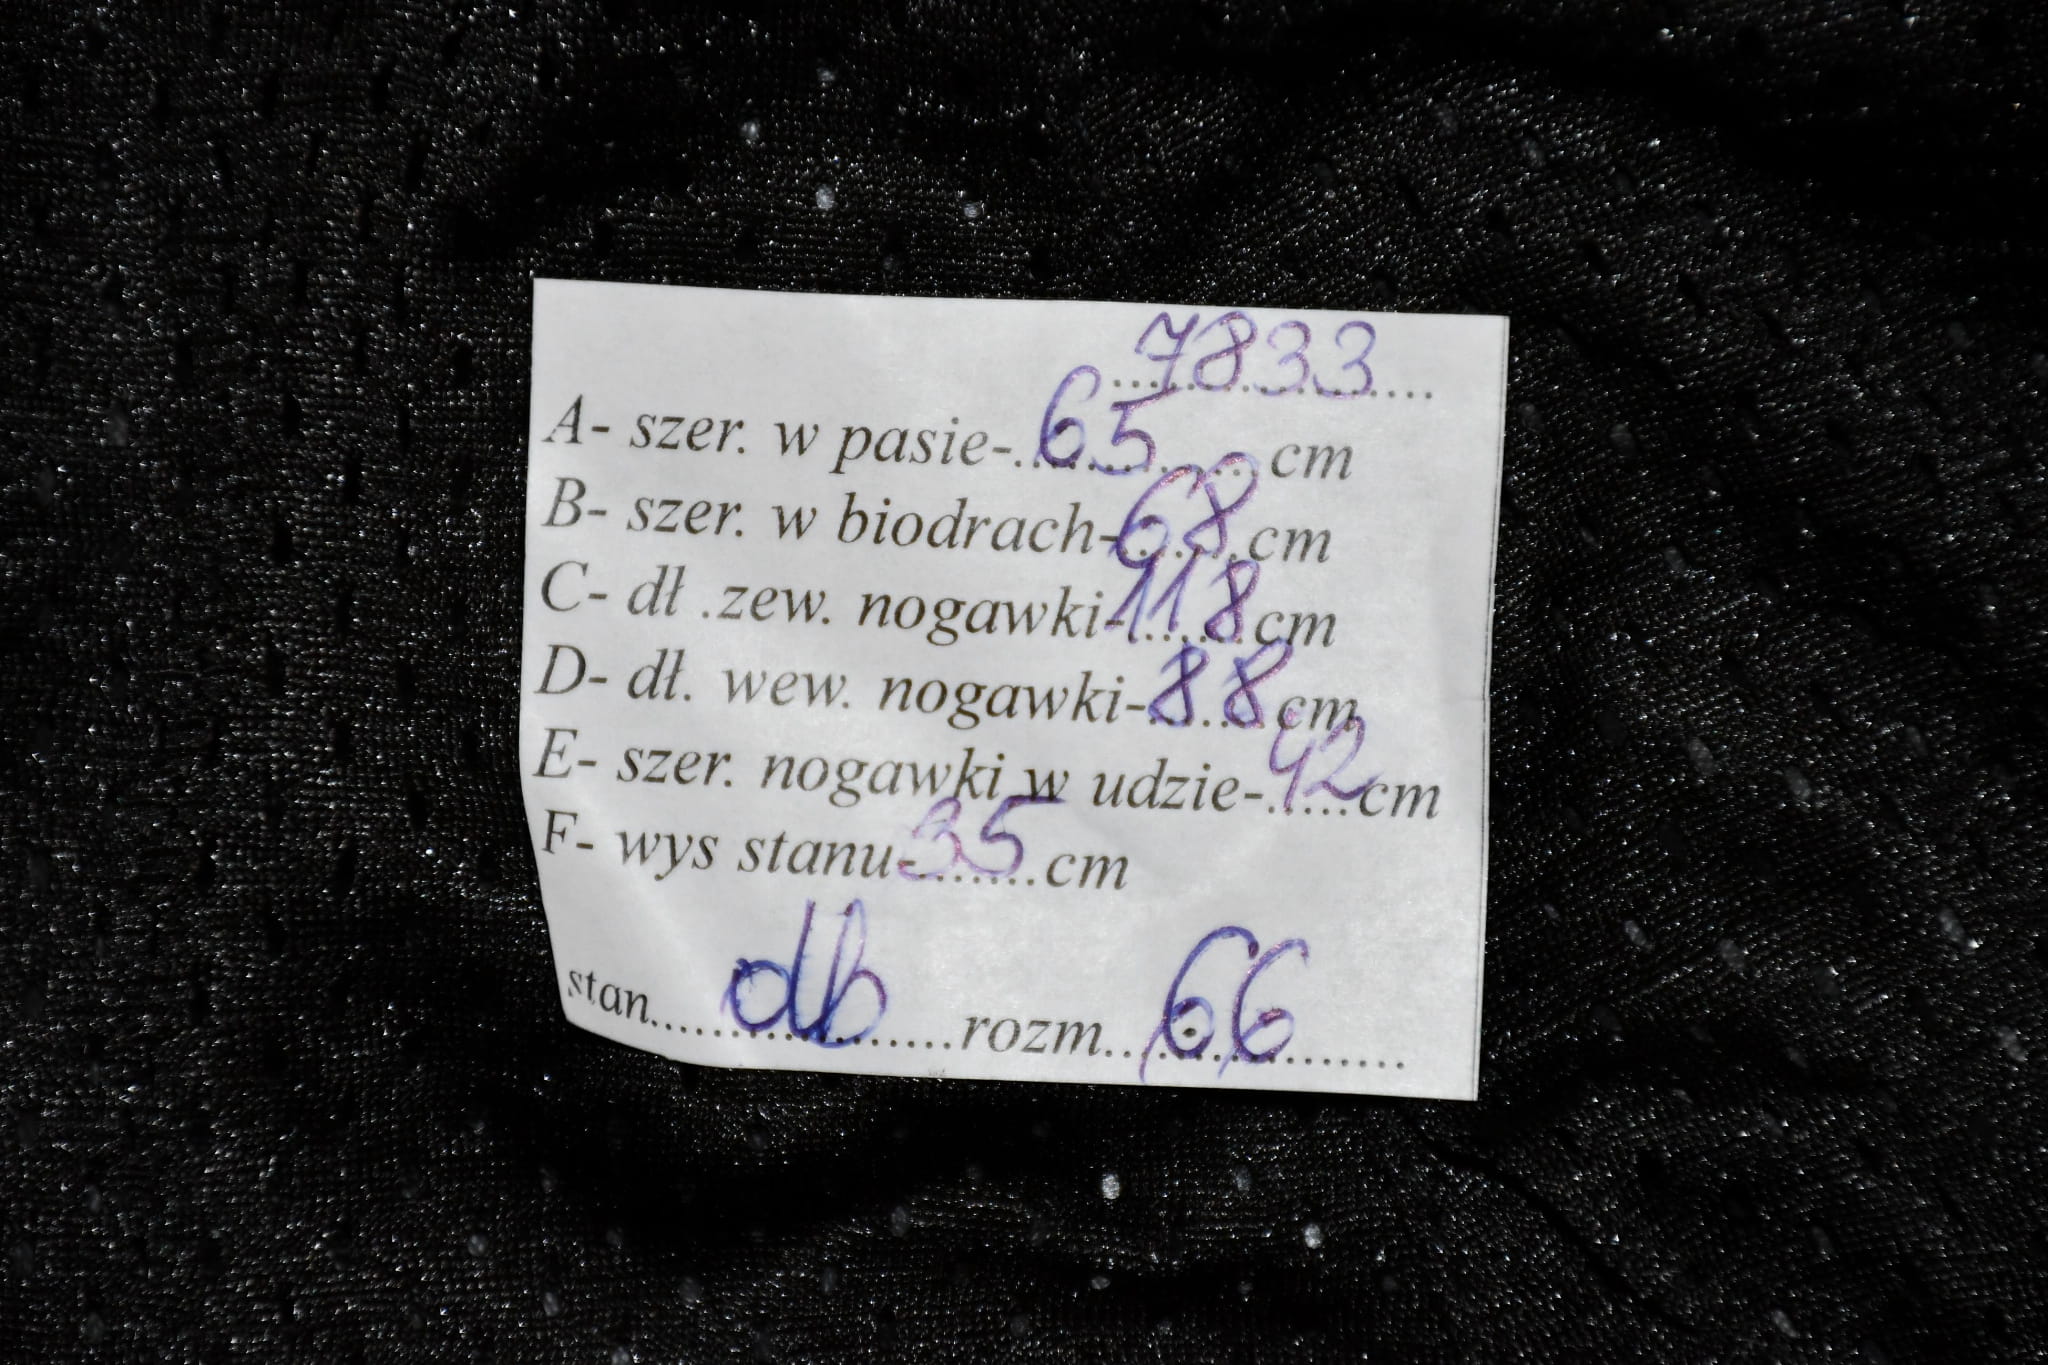 7833
A- szer. w pasie-.65..........cm
B- szer. w biodrach-68cm
C- dł .zew. nogawki-118cm
D- dł. wew. nogawki-88cm
E- szer. nogawki w udzie-.42cm
F- wys stanu-35.cm
stan.....db......rozm...66.........